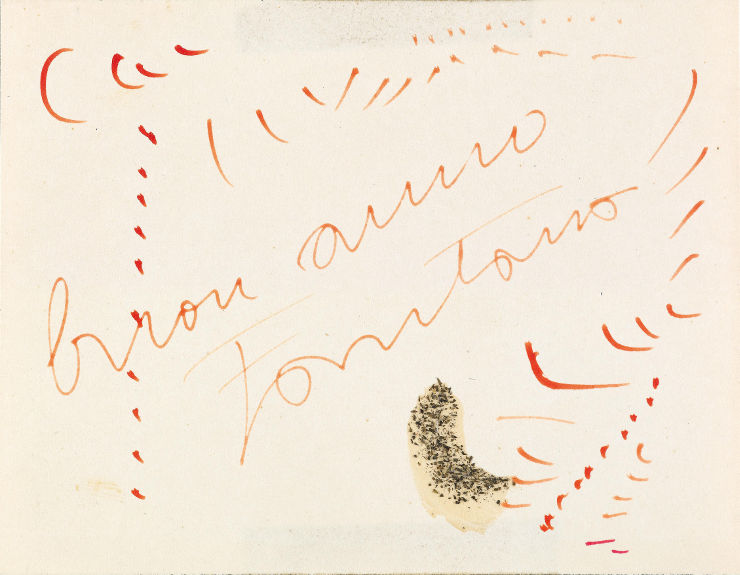 buon anno
Fontana